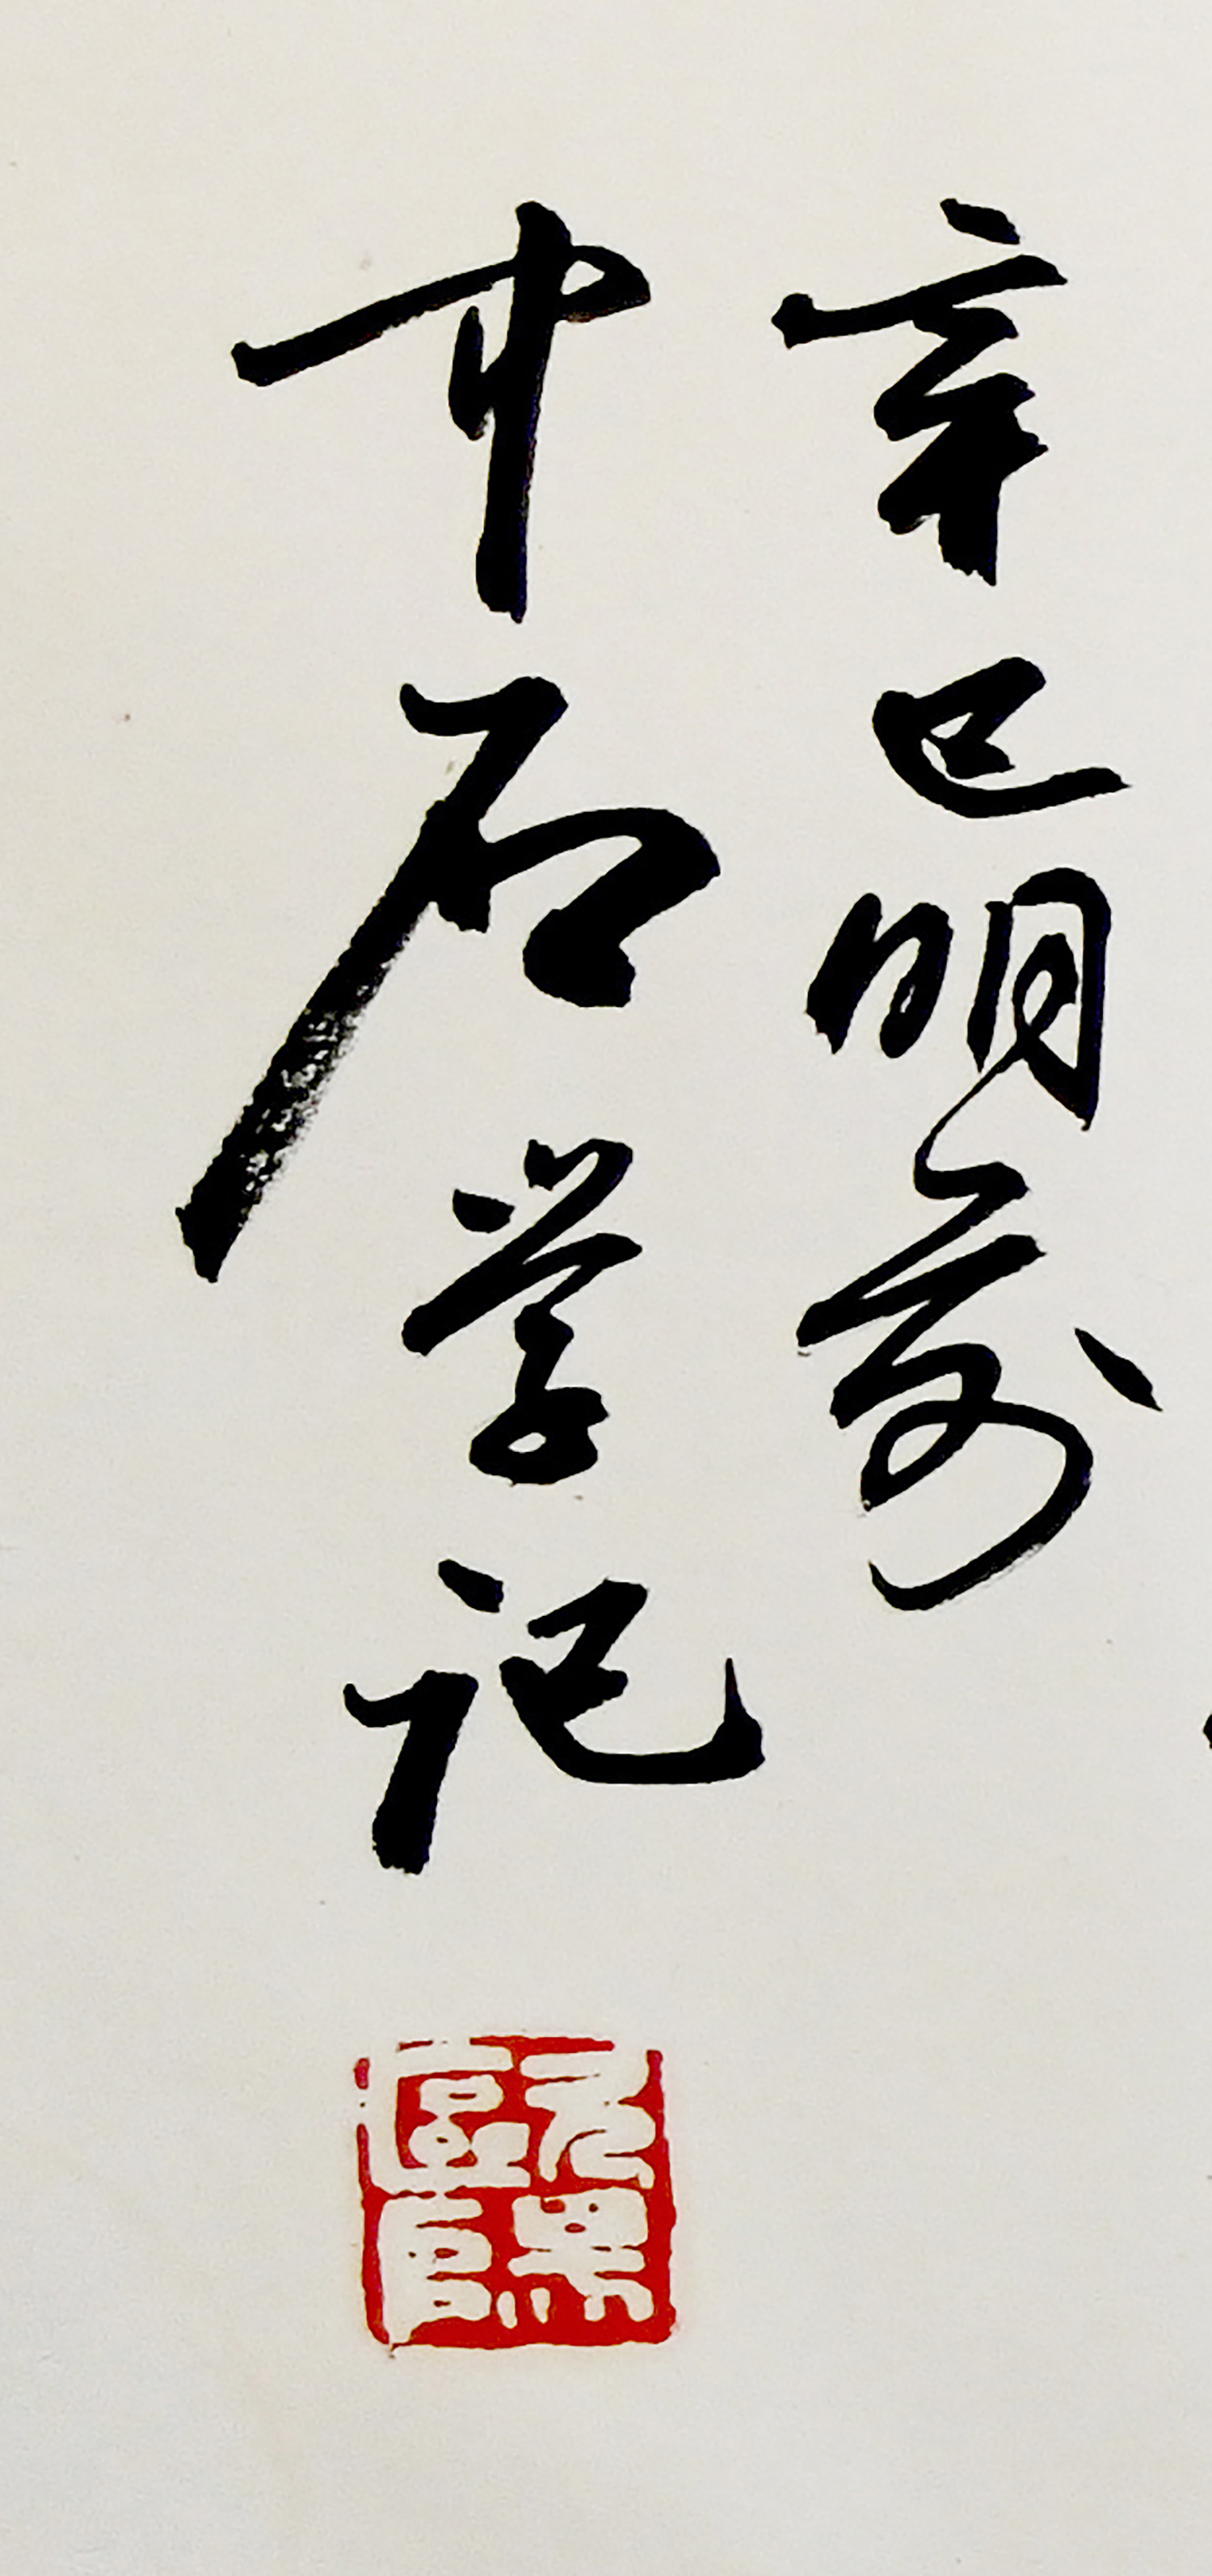 辛巳明前
中石学记